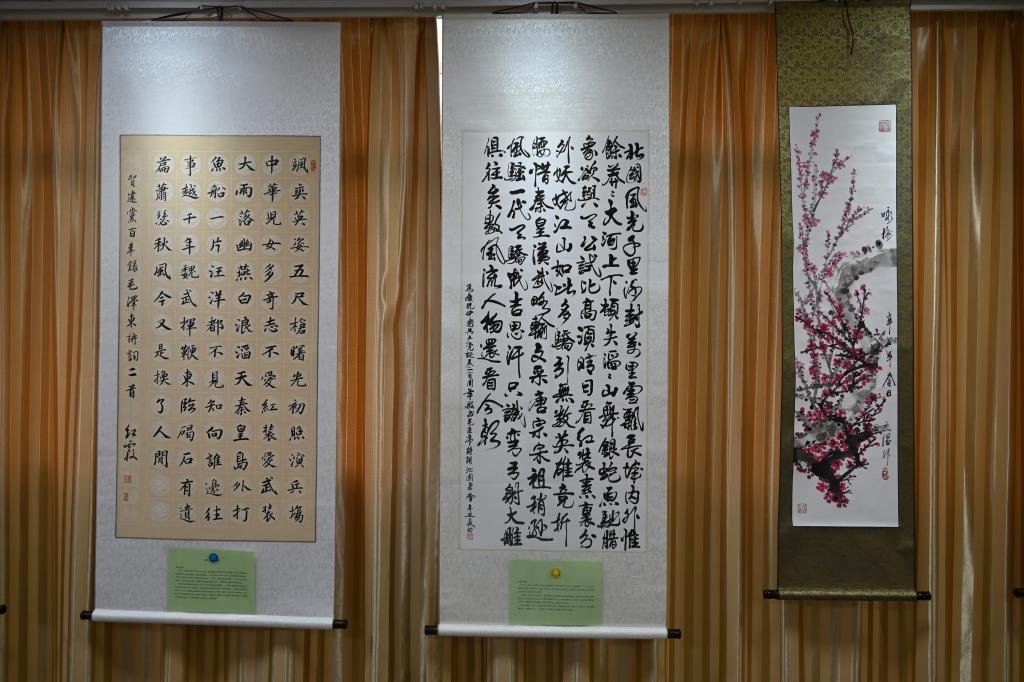 颯爽英姿五尺槍曙光初照演兵場
中華兒女多奇志不愛紅裝愛武裝
大雨落幽燕白浪滔天秦皇島外打
魚船一片汪洋都不見知向誰邊往
事越千年魏武揮鞭東臨碣石有遺
篇蕭瑟秋風今又是換了人間
賀建黨百年錄毛澤東詩詞二首 紅霞
北國風光千里冰封萬里雪飄長城內外惟
餘莽〻大河上下頓失滔〻山舞銀蛇原馳臘
象欲與天公試比高須晴日看紅裝素裹分
外妖嬈江山如此多嬌引無數英雄竟折
腰惜秦皇漢武略輸文采唐宗宋祖稍遜
風騷一代天驕成吉思汗只識彎弓射大雕
俱往矣數風流人物還看今朝
為慶祝中國共產黨誕辰一百周年敬書毛主席詩詞沁園春雪
咏梅
辛丑年春日